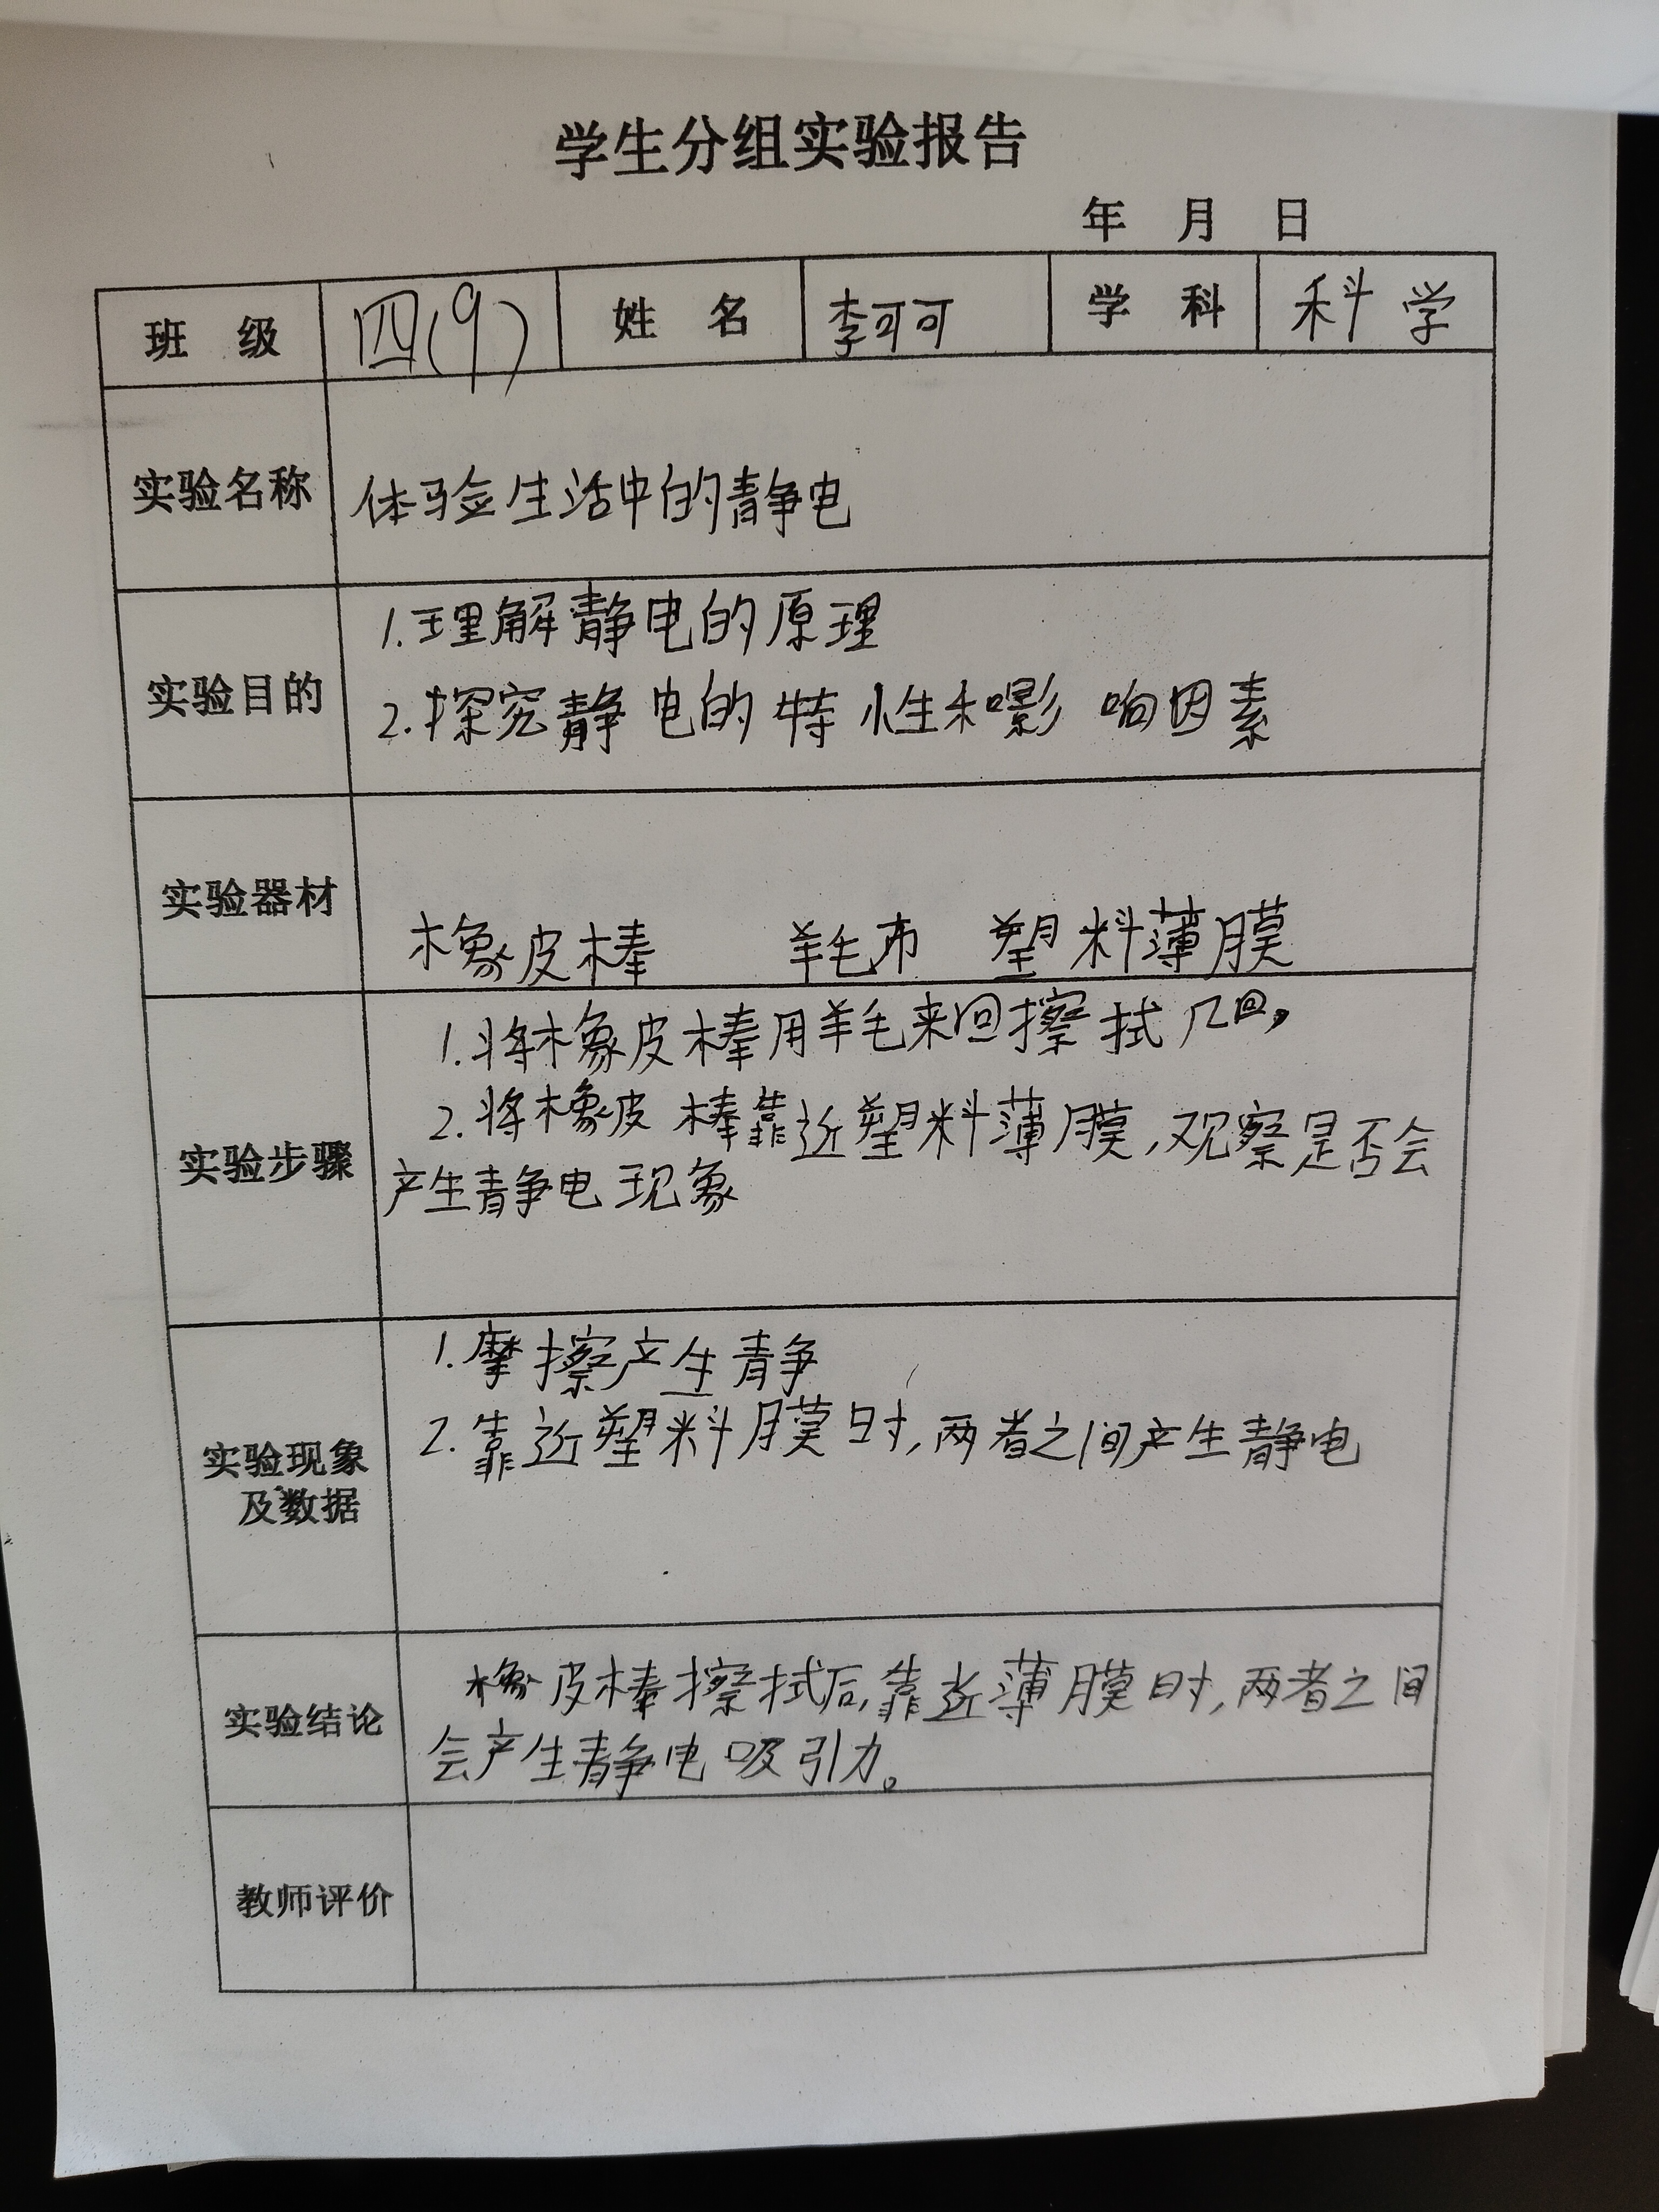 学生分组实验报告
年 月 日
班 级 四(9) 姓 名 李可可 学 科 科学
实验名称 体验生活中的静电
实验目的 1.理解静电的原理
2.探究静电的特性和影响因素
实验器材 橡皮棒 羊毛布 塑料薄膜
实验步骤 1.将橡皮棒用羊毛来回擦拭几回,
2.将橡皮棒靠近塑料薄膜,观察是否会
产生静电现象
实验现象
及数据
1.摩擦产生静
2.靠近塑料膜时,两者之间产生静电
实验结论 橡皮棒擦拭后,靠近薄膜时,两者之间
会产生静电吸引力。
教师评价